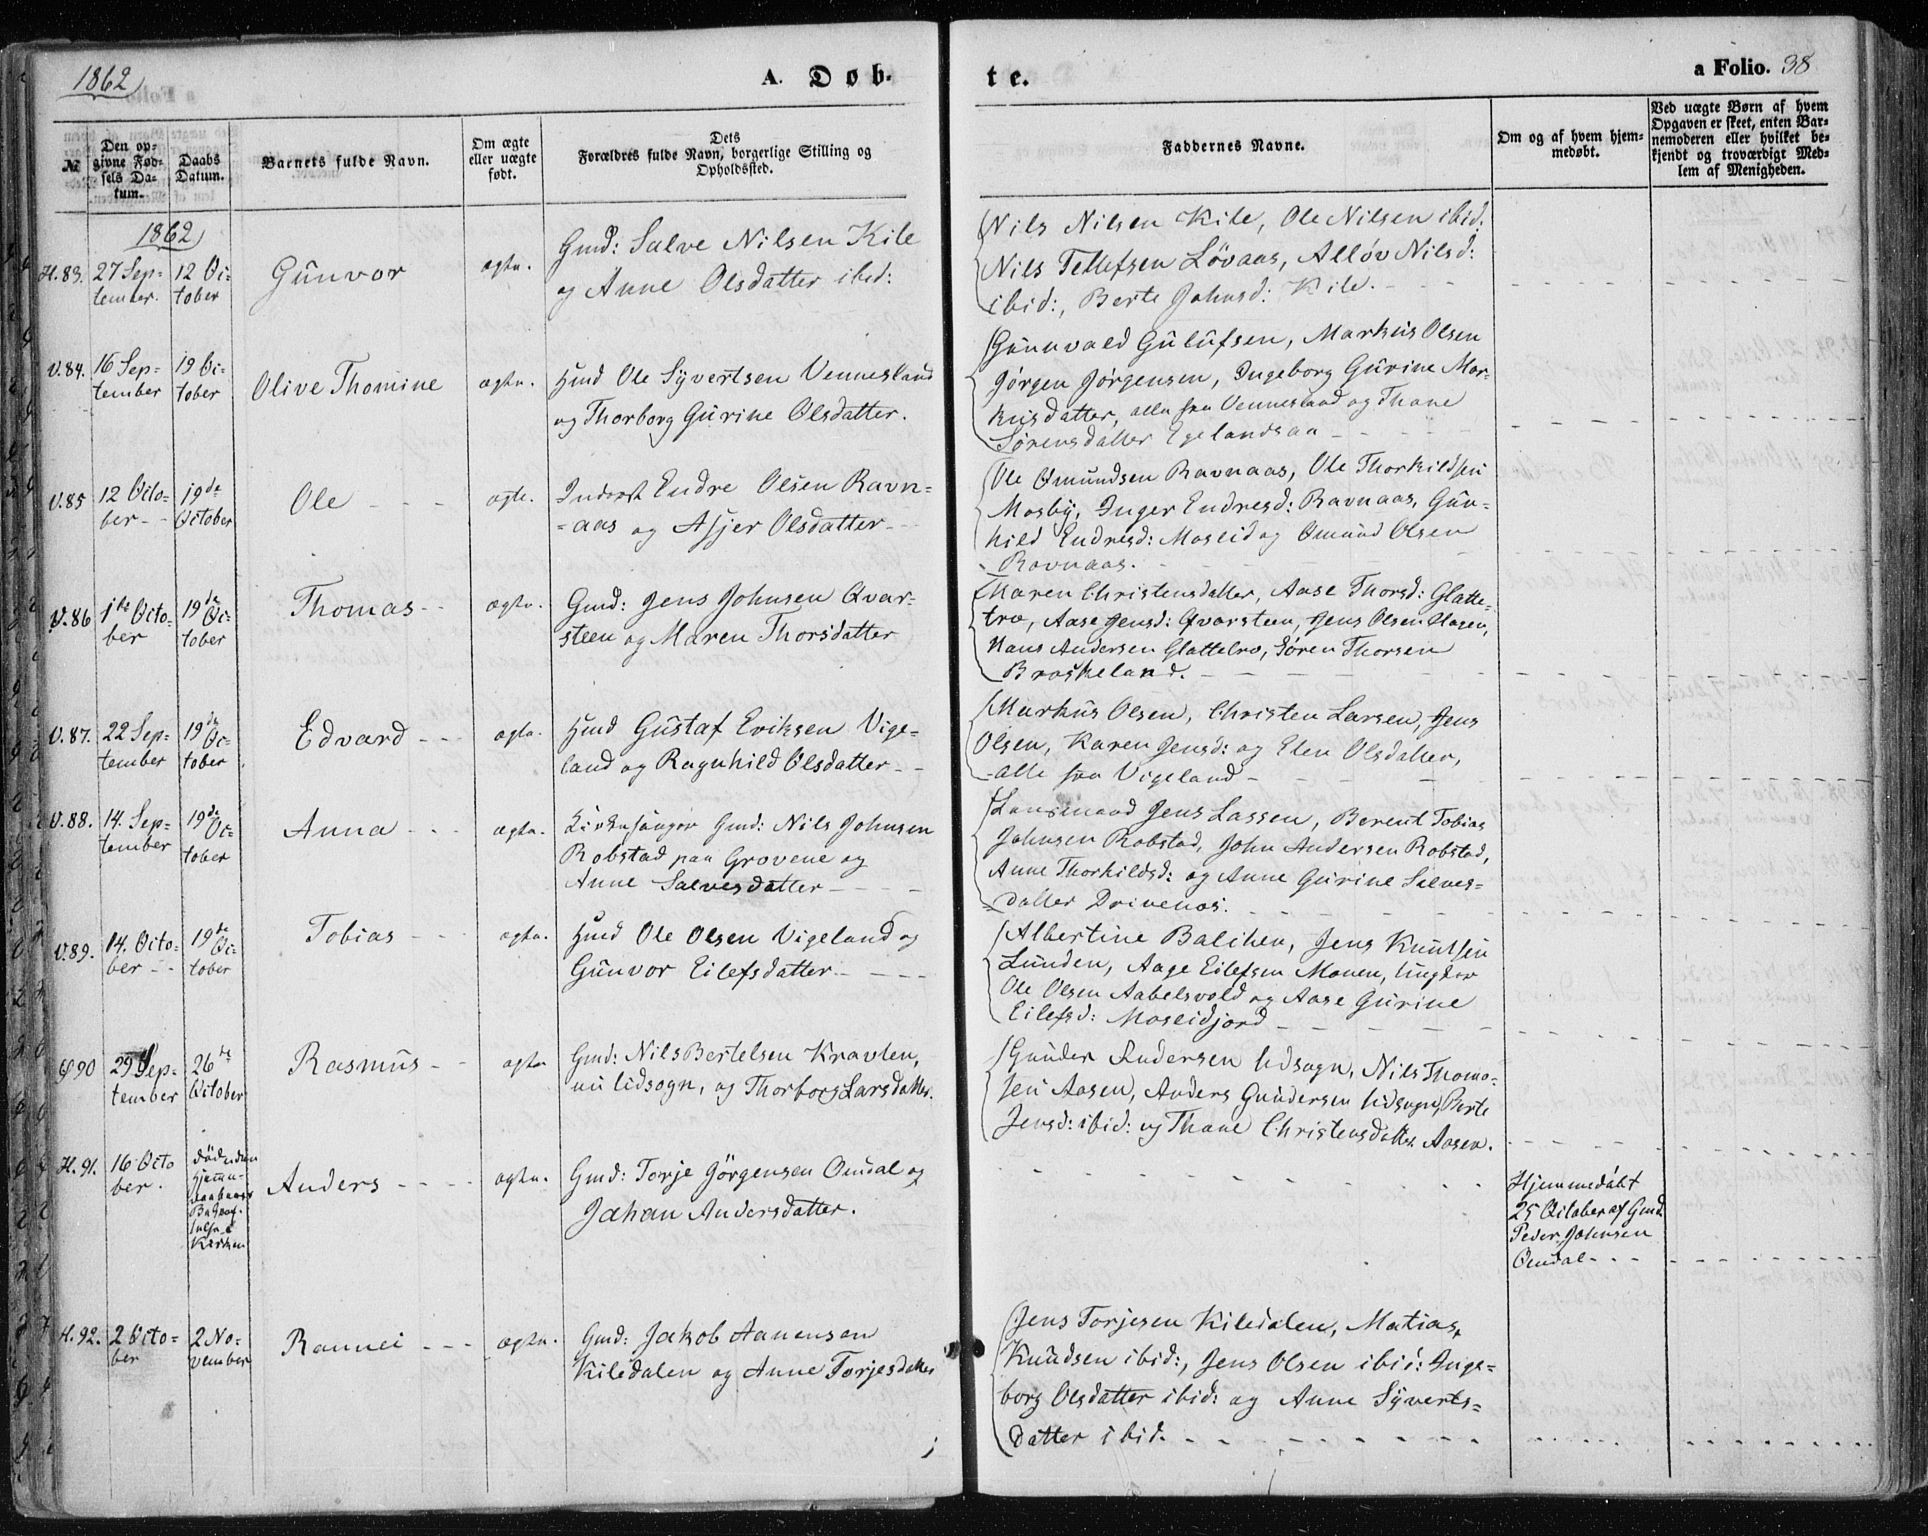 1862
A. Døb-
te.
a Folio. 38
№
Den op-
givne Fød-
sels Da-
tum.
Daabs
Datum.
Barnets fulde Navn.
Om ægte
eller uægte
født.
Dets
Forældres fulde Navn, borgerlige Stilling og
Opholdssted.
Faddernes Navne.
Om og af hvem hjem-
medøbt.
Ved uægte Børn af hvem
Opgaven er skeet, enten Bar-
nemoderen eller hvilket be-
kjendt og troværdigt Med-
lem af Menigheden.
1862
H. 83.
27 Sep-
tember.
12 Oc-
tober
Gunvor
ægte.
Gmd: Salve Nilsen Kile
og Anne Olsdatter ibid:
Nils Nilsen Kile, Ole Nilsen ibid:
Nils Tellefsen Lövaas, Alløv Nilsd:
ibid:, Berte Johnsd: Kile.
V. 84.
16 Sep-
tember
19 Oc-
tober
Olive Thomine
ægte.
Hmd Ole Syvertsen Vennesland
og Thorborg Gurine Olsdatter.
Gunuvald Gulufsen, Markus Olsen
Jörgen Jörgensen, Ingeborg Gurine Mar-
kusdatter, alle fra Vennesland og Thane
Sörensdatter Egelandsaa
V. 85
12 Octo-
ber
19de
October
Ole
ægte.
Inderst Endre Olsen Ravn=
=aas og Asjer Olsdatter
Ole Omundsen Ravnaas, Ole Thorkildsen
Mosby, Inger Endresd: Ravnaas, Gun-
hild Endresd: Moseid og Omund Olsen
Ravnaas.
V. 86
1ste Octo-
ber
19de Oc-
tober
Thomas
ægte.
Gmd: Jens Johnsen Qvar-
steen og Maren Thorsdatter
Maren Christensdatter, Aase Thorsd: Glatte-
tro, Aase Jensd: Qvarsteen, Jens Olsen Aasen,
Hans Andersen Glattetro, Sören Thorsen
Braskeland.
V. 87.
22 Sep-
tember
19de Oc-
tober
Edvard
ægte.
Hmd Gustaf Eriksen Vige-
land og Ragnhild Olsdatter
Markus Olsen, Christen Larsen, Jens
Olsen, Karen Jensd: og Elen Olsdatter,
alle fra Vigeland
V. 88.
14. Sep-
tember
19de Oc-
tober
Anna
ægte.
Kirkesanger Gmd: Nils Johnsen
Robstad paa Grovene og
Anne Salvesdatter
Lensmand Jens Lassen, Berent Tobias
Johnsen Robstad, John Andersen Robstad,
Anne Thorkildsd: og Anne Gurine Salves-
datter Drivenes.
V. 89.
14. Octo-
ber
19de Oc-
tober
Tobias
ægte.
Hmd Ole Olsen Vigeland og
Gunvor Eilefsdatter
Albertine Balchen, Jens Knutsen
Lunden, Aage Eilefsen Mouen, Ungkar
Ole Olsen Aabelsvold og Aase Gurine
Eilefsd: Moseidjord
90
29 Sep-
tember
26de
October
Rasmus
ægte
Gmd: Nils Bertelsen Kravlen,
nu Udsogn, og Thorborg Larsdatter.
Gunder Andersen Udsogn, Nils Thoma-
sen Aasen, Anders Gundersen Udsogn, Berte
Jensd: ibid: og Thane Christensdatter Aasen.
H. 91.
16 Octo
ber.
död uden
Kirken
Anders
ægte.
Gmd: Torje Jörgensen Omdal og
Johan Andersdatter.
Hjemmedöbt
25 October af Gmd.
Peder Johnsen
Omdal
H. 92.
2 Octo-
ber
2 No-
vember
Rannei
ægte.
Gmd: Jakob Aanensen
Kiledalen og Anne Torjesdatter
Jens Torjesen Kiledalen, Matias
Knudsen ibid:, Jens Olsen ibid: Inge-
borg Olsdatter ibid: og Anne Syverts-
datter ibid.